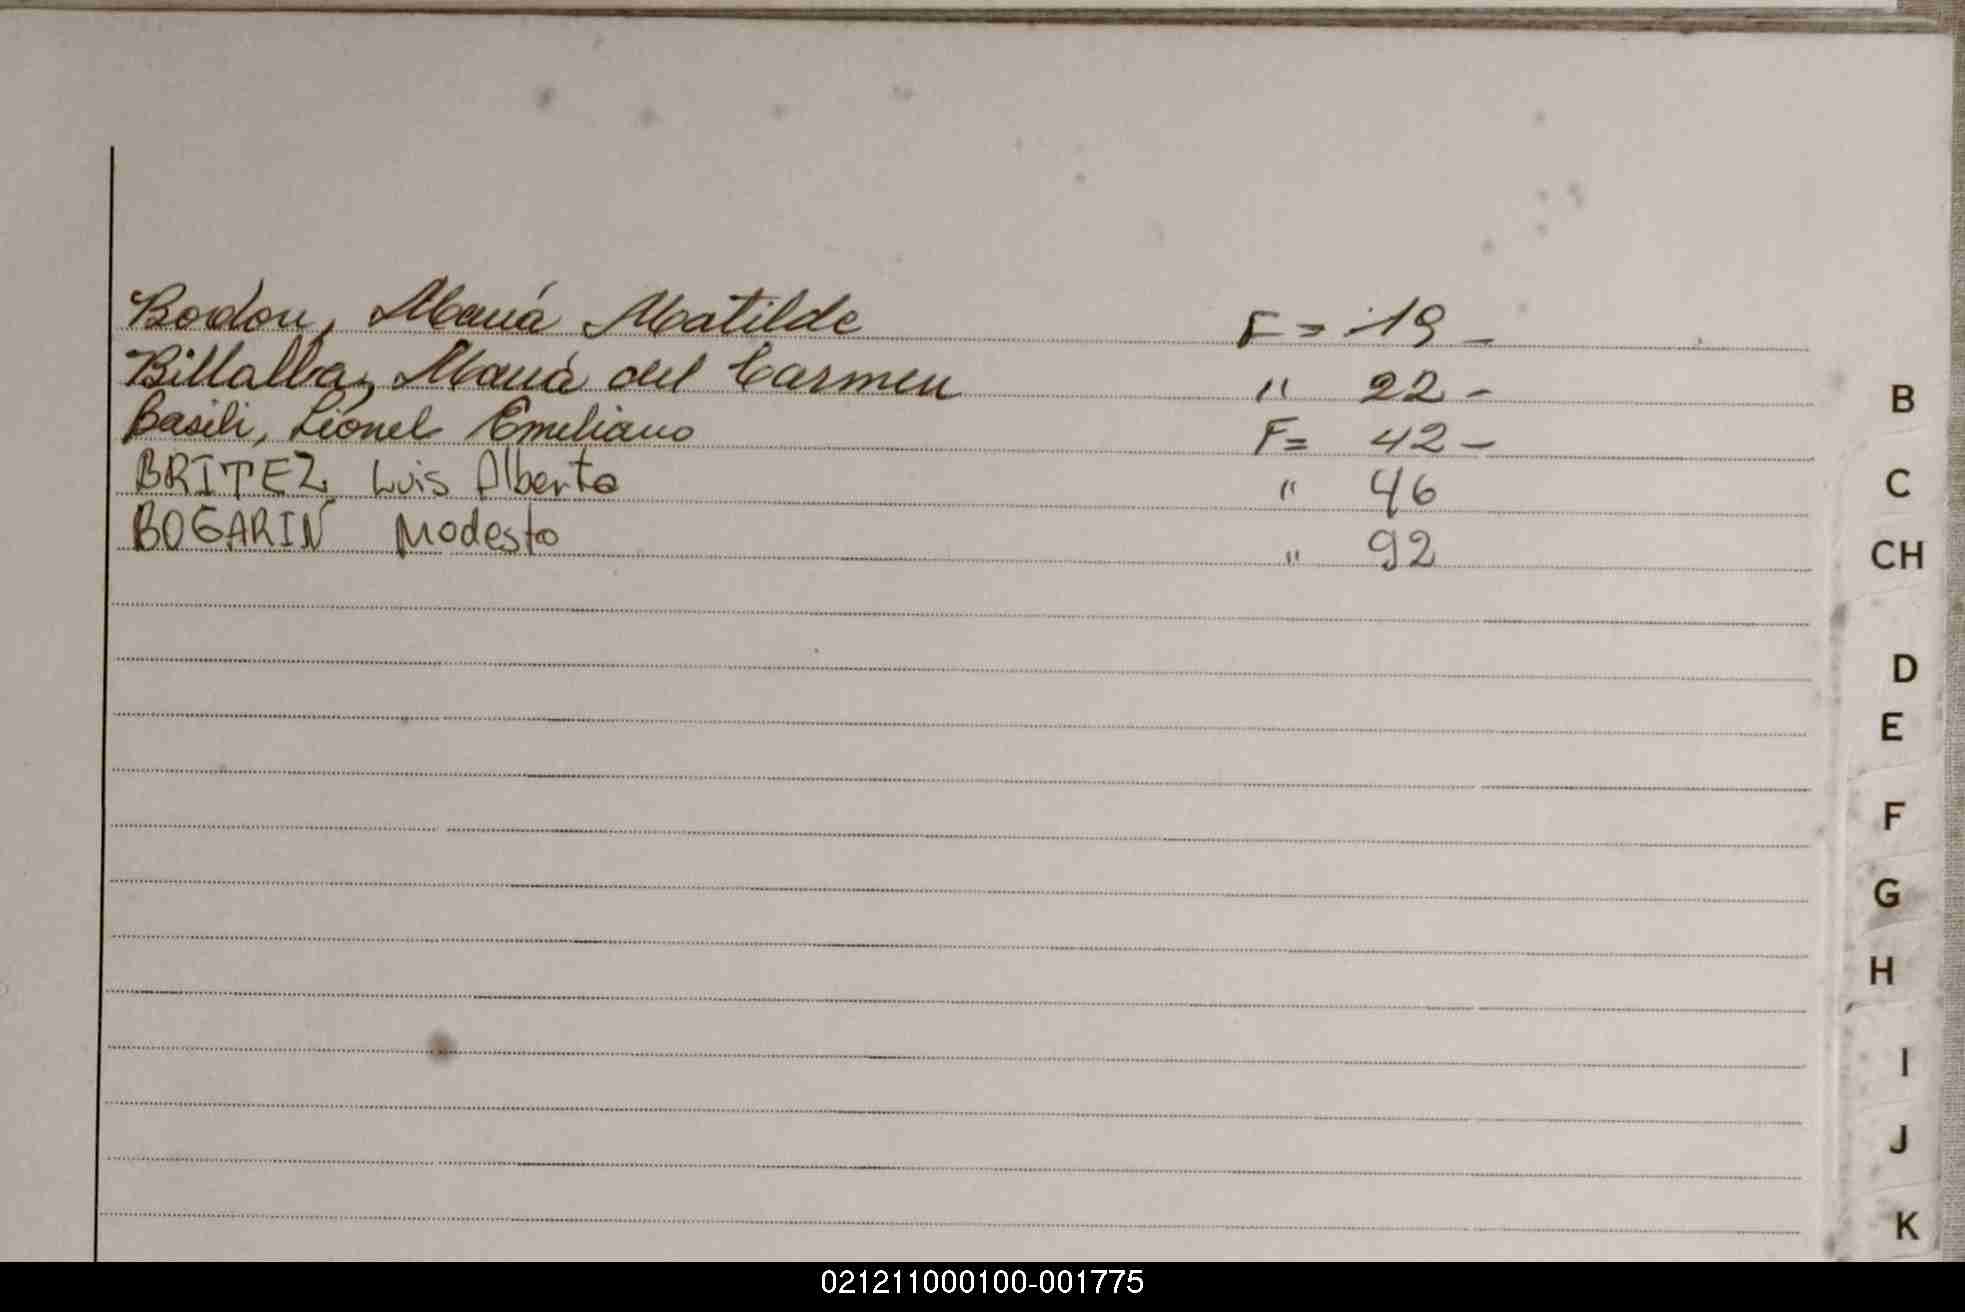 Bordon, María Matilde F = 19 -
Billalba, María del Carmen " 22 -
Basili, Lionel Emiliano F = 42 -
BRITEZ Luis Alberto " 46
BOGARIN Modesto " 92
B
C
CH
D
E
F
G
H
I
J
K
021211000100-001775